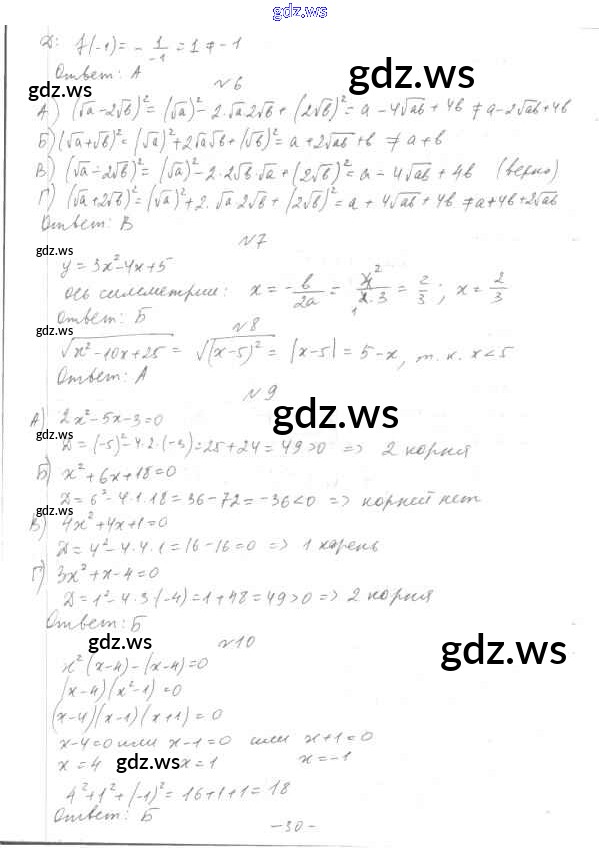 gdz.ws
Д: f(-1) = - 1/-1 = 1 ≠ -1
Ответ: А
gdz.ws
gdz.ws
№6
А) (√a - 2√b)² = (√a)² - 2·√a·2√b + (2√b)² = a - 4√ab + 4b ≠ a - 2√ab + 4b
Б) (√a + √b)² = (√a)² + 2√a√b + (√b)² = a + 2√ab + b ≠ a + b
В) (√a - 2√b)² = (√a)² - 2·2√b·√a + (2√b)² = a - 4√ab + 4b (верно)
Г) (√a + 2√b)² = (√a)² + 2·√a·2√b + (2√b)² = a + 4√ab + 4b ≠ a + 4b + 2√ab
Ответ: В
№7
gdz.ws
y = 3x² - 4x + 5
ось симметрии: x = - b/2a = 4²/₁2·3 = 2/3; x = 2/3
Ответ: Б
№8
gdz.ws
√x² - 10x + 25 = √(x-5)² = |x-5| = 5-x, т.к. x<5
Ответ: А
№9
gdz.ws
А) 2x² - 5x - 3 = 0
gdz.ws
Д = (-5)² - 4·2·(-3) = 25 + 24 = 49 > 0 => 2 корня
Б) x² + 6x + 18 = 0
Д = 6² - 4·1·18 = 36 - 72 = -36 < 0 => корней нет
gdz.ws
В) 4x² + 4x + 1 = 0
Д = 4² - 4·4·1 = 16 - 16 = 0 => 1 корень
Г) 3x² + x - 4 = 0
gdz.ws
Д = 1² - 4·3·(-4) = 1 + 48 = 49 > 0 => 2 корня
Ответ: Б
№10
gdz.ws
gdz.ws
x²(x-4) - (x-4) = 0
(x-4)(x²-1) = 0
(x-4)(x-1)(x+1) = 0
x-4=0 или x-1=0 или x+1=0
x = 4 x = 1 x = -1
gdz.ws
gdz.ws
4² + 1² + (-1)² = 16 + 1 + 1 = 18
Ответ: Б
-30-
gdz.ws